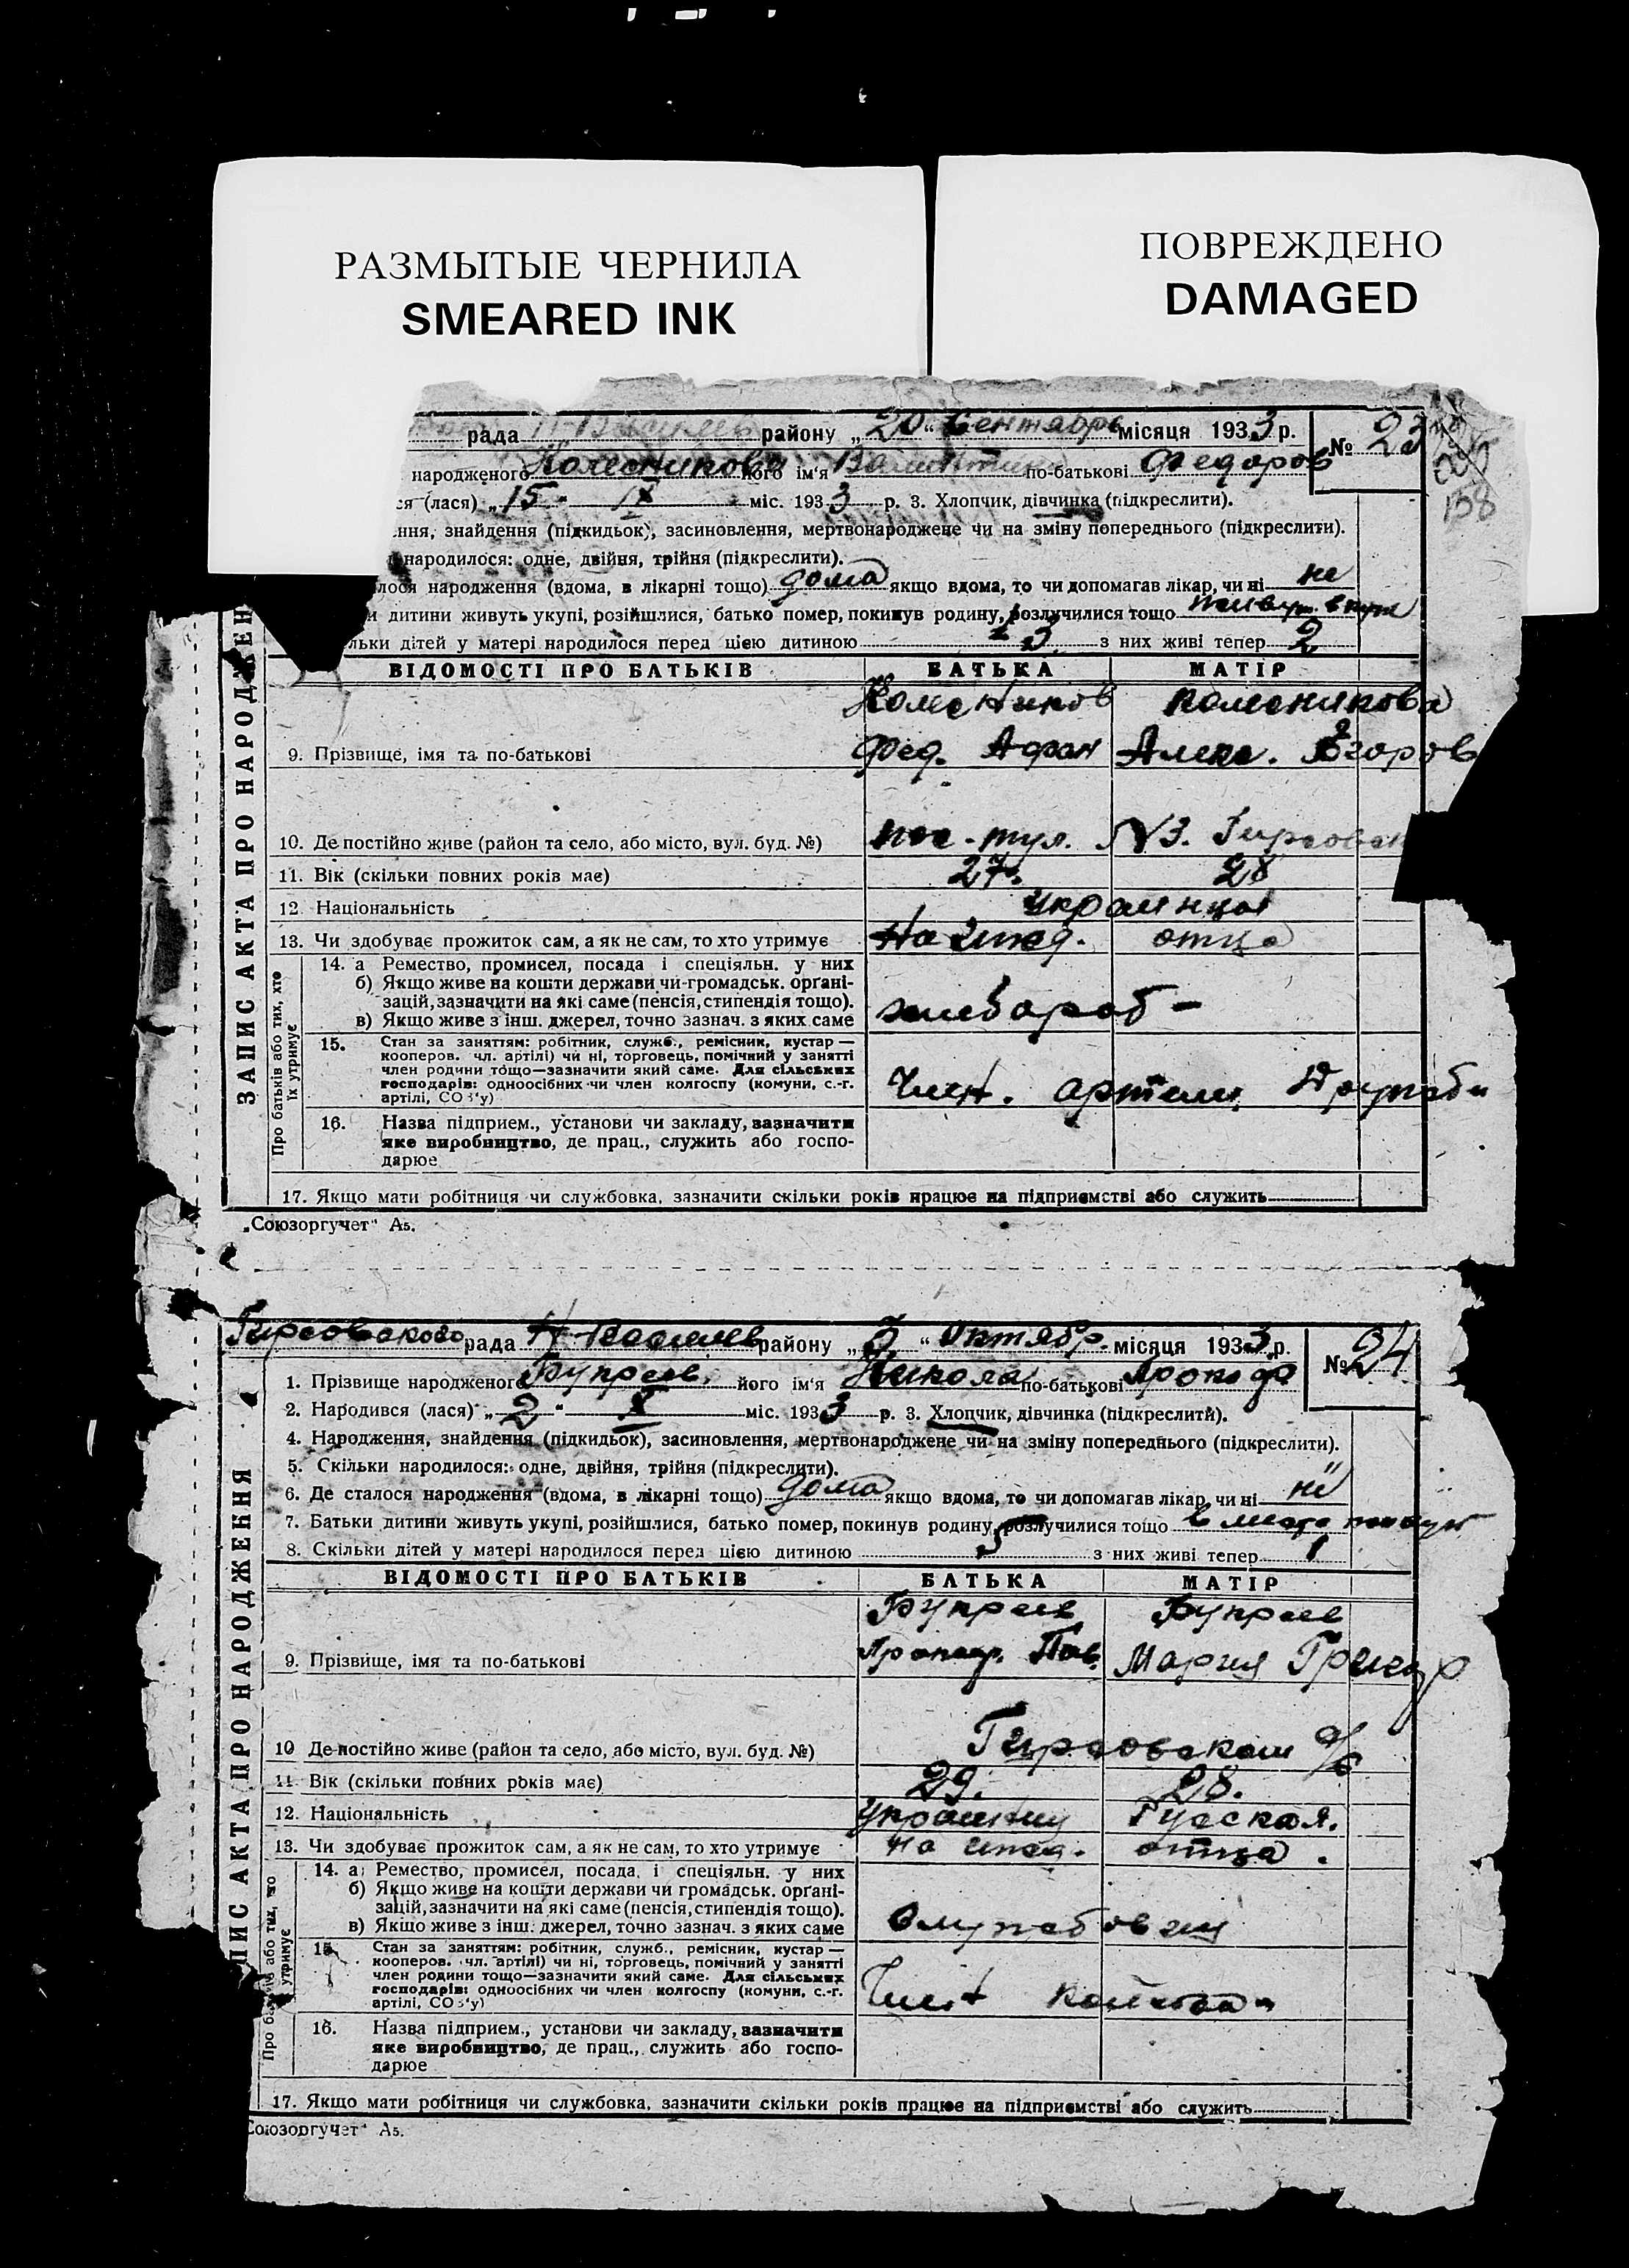 РАЗМЫТЫЕ ЧЕРНИЛА
SMEARED INK
ПОВРЕЖДЕНО
DAMAGED
рада району „20“ Сентябрь місяця 1933 р. № 23
народженого Колесникова його ім'я по-батькові Федоров
158
ся (лася) „15 “ IX міс. 1933 р. 3. Хлопчик, дівчинка (підкреслити).
ння, знайдення (підкидьок), засиновлення, мертвонароджене чи на зміну попереднього (підкреслити).
народилося: одне, двійня, трійня (підкреслити).
лося народження (вдома, в лікарні тощо) дома якщо вдома, то чи допомагав лікар, чи ні не
и дитини живуть укупі, розійшлися, батько помер, покинув родину, розлучилися тощо
льки дітей у матері народилося перед цією дитиною 3 з них живі тепер 2
ВІДОМОСТІ ПРО БАТЬКІВ БАТЬКА МАТІР
Колесников Колесникова
9. Прізвище, імя та по-батькові Фед. Афан Алекс. Егоров
10. Де постійно живе (район та село, або місто, вул. буд. №)
11. Вік (скільки повних років має) 27. 28
12 Національність украинцы
13. Чи здобуває прожиток сам, а як не сам, то хто утримує На ижд. отца
14. а Ремество, промисел, посада і спеціяльн. у них
б) Якщо живе на кошти держави чи громадськ. орґані-
зацій, зазначити на які саме (пенсія, стипендія тощо).
в) Якщо живе з інш. джерел, точно зазнач. з яких саме хлебороб -
15. Стан за заняттям: робітник, служб., ремісник, кустар —
кооперов. чл. артілі) чи ні, торговець, помічний у занятті
член родини тощо—зазначити який саме. Для сільських
господарів: одноосібних чи член колгоспу (комуни, с.-г.
артілі, СОЗ'у) Член. артели
16. Назва підприєм., установи чи закладу, зазначити
яке виробництво, де прац., служить або госпо-
дарює
17. Якщо мати робітниця чи службовка, зазначити скільки років працює на підприємстві або служить
ЗАПИС АКТА ПРО НАРОДЖЕН
Про батьків або тих, хто
їх утримує
„Союзоргучет“ А5.
Гирсовского рада Н-Василев району „3“ октябр. місяця 1933 р. № 24
1. Прізвище народженого Бупреев його ім'я Никола по-батькові
2. Народився (лася) „2“ X міс. 1933 р. 3. Хлопчик, дівчинка (підкреслити).
4. Народження, знайдення (підкидьок), засиновлення, мертвонароджене чи на зміну попереднього (підкреслити).
5. Скільки народилося: одне, двійня, трійня (підкреслити).
6. Де сталося народження (вдома, в лікарні тощо) дома якщо вдома, то чи допомагав лікар, чи ні ні
7. Батьки дитини живуть укупі, розійшлися, батько помер, покинув родину, розлучилися тощо
8. Скільки дітей у матері народилося перед цією дитиною з них живі тепер 1
ВІДОМОСТІ ПРО БАТЬКІВ БАТЬКА МАТІР
Бупреев Бупреев
9. Прізвище, імя та по-батькові Пав. Мария Григор
10 Де постійно живе (район та село, або місто, вул. буд. №) Гирсовском с/с
11. Вік (скільки повних років має) 29. 28.
12. Національність украинец Русская.
13. Чи здобуває прожиток сам, а як не сам, то хто утримує на ижд. отца.
14. а) Ремество, промисел, посада і спеціяльн. у них
б) Якщо живе на кошти держави чи громадськ. орґані-
зацій, зазначити на які саме (пенсія, стипендія тощо).
в) Якщо живе з інш. джерел, точно зазнач. з яких саме
15. Стан за заняттям: робітник, служб., ремісник, кустар —
кооперов. чл. артілі) чи ні, торговець, помічний у занятті
член родини тощо—зазначити який саме. Для сільських
господарів: одноосібних чи член колгоспу (комуни, с.-г.
артілі, СОЗ'у) Член
16. Назва підприєм., установи чи закладу, зазначити
яке виробництво, де прац., служить або госпо-
дарює
17. Якщо мати робітниця чи службовка, зазначити скільки років працює на підприємстві або служить
ПИС АКТА ПРО НАРОДЖЕННЯ
Про батьків або тих, що
утримує
Союзоргучет“ А5.